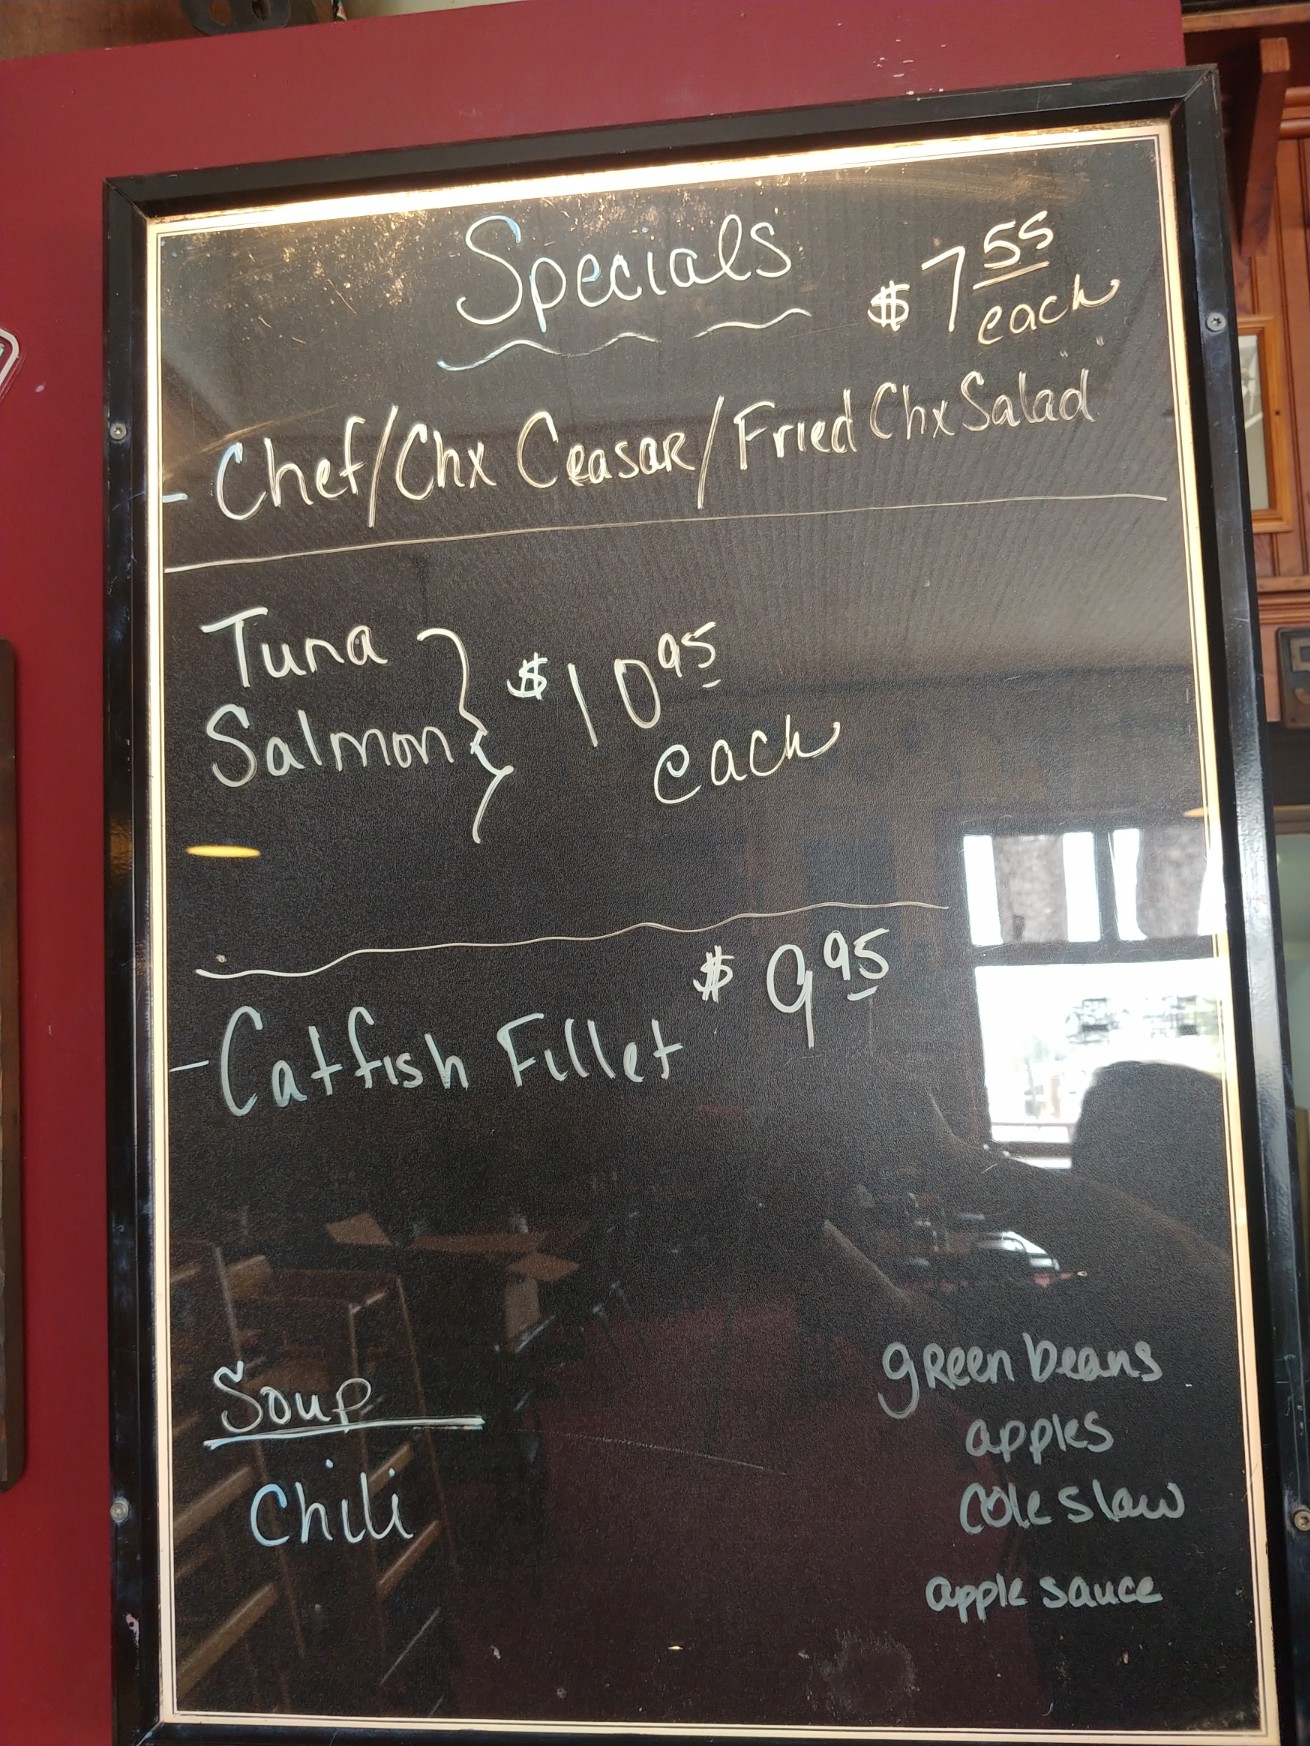 Specials
$7 55 each
- Chef/Chx Ceasar/Fried Chx Salad
Tuna
Salmon
$10 95
each
- Catfish Fillet $9 95
Soup
Chili
green beans
apples
cole slaw
apple sauce